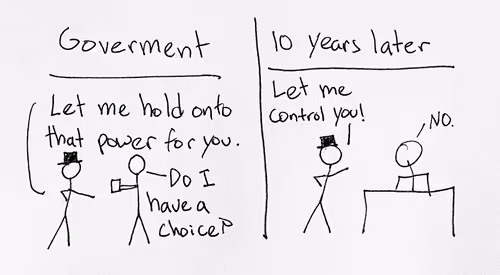 Goverment
Let me hold onto
that power for you.
Do I
have a
choice?
10 years later
Let me
control you!
NO.